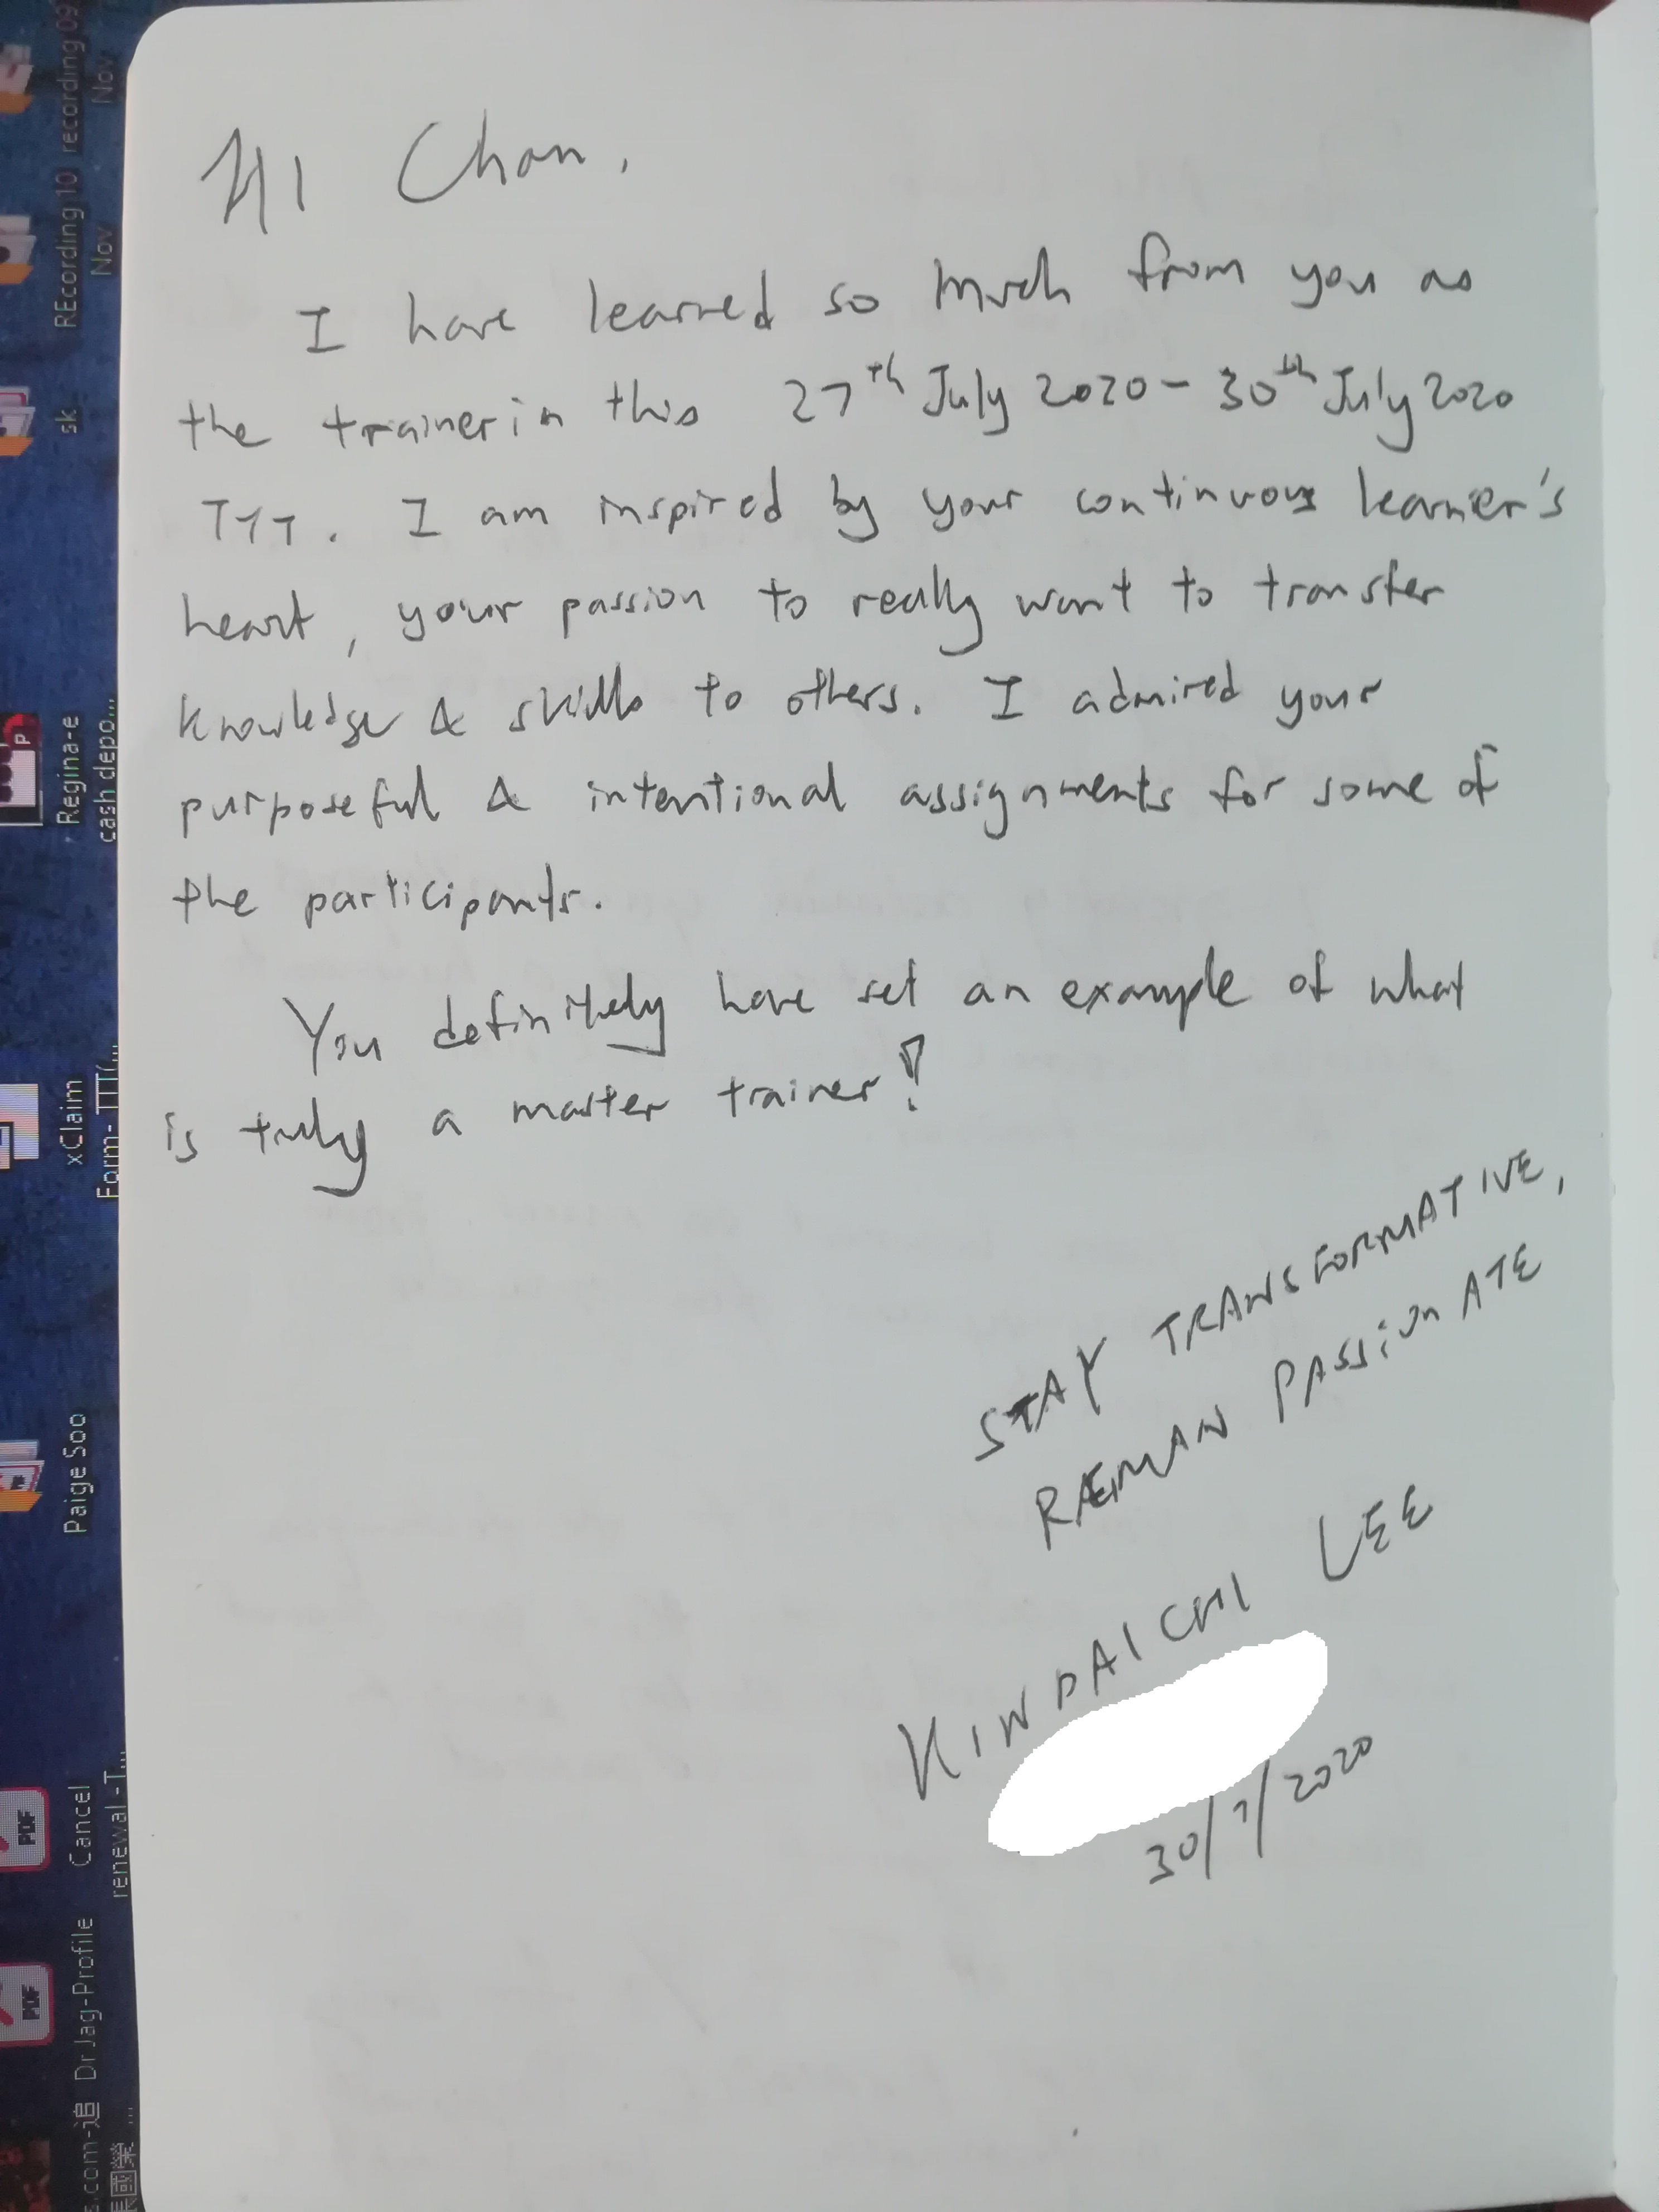 HI Chan,
I have learned so much from you as
the trainer in this 27th July 2020 - 30th July 2020
TTT. I am inspired by your continuous learner's
heart, your passion to really want to transfer
knowledge & skills to others. I admired your
purposeful & intentional assignments for some of
the participants.
You definitely have set an example of what
is truly a master trainer!
STAY TRANSFORMATIVE,
REMAIN PASSIONATE
KINDAICHI LEE
30/7/2020
recording 09
Nov
REcording 10
Nov
sk
Regina-e
cash depo...
xClaim
Form- TTT(...
Paige Soo
Cancel
renewal -T...
PDF
DrJag-Profile
PDF
s.com-追
美國榮 ...